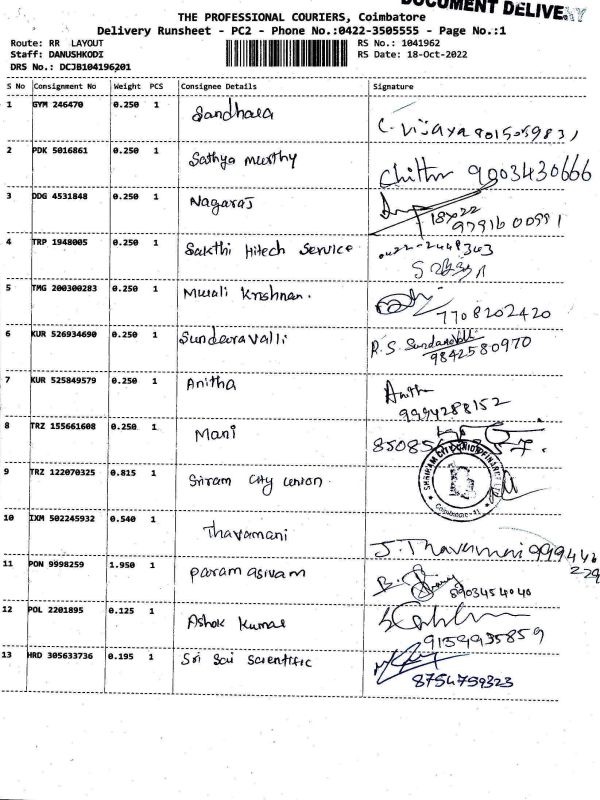 DOCUMENT DELIVERY
THE PROFESSIONAL COURIERS, Coimbatore
Delivery Runsheet - PC2 - Phone No.:0422-3505555 - Page No.:1
Route: RR LAYOUT
RS No.: 1041962
Staff: DANUSHKODI
RS Date: 18-Oct-2022
DRS No.: DCJB104196201
S No Consignment No Weight PCS Consignee Details Signature
1 GYM 246470 0.250 1 Sandhara C. Vijaya 8015059831
2 PDK 5016861 0.250 1 Sathya murthy Chithra 9003430666
3 DDG 4531848 0.250 1 Nagaraj 18X22
9791600991
4 TRP 1948005 0.250 1 Sakthi Hitech Service 0422-2449343
5 TMG 200300283 0.250 1 Murali Krishnan. 7708202420
6 KUR 526934690 0.250 1 Sundaravalli R.S. Sundaravalli
9842580970
7 KUR 525849579 0.250 1 Anitha Anith
9994288152
8 TRZ 155661608 0.250 1 Mani
9 TRZ 122070325 0.815 1 Sriram City Union. SHRIRAM CITY UNION FINANCE LTD
Coimbatore
10 IXM 502245932 0.540 1 Thavamani J. Thavamani 999446
229
11 PON 9998259 1.950 1 Param asivam B.
8903454040
12 POL 2201895 0.125 1 Ashok Kumar
9159935859
13 HRD 305633736 0.195 1 Sri Sai Scientific
8754759323